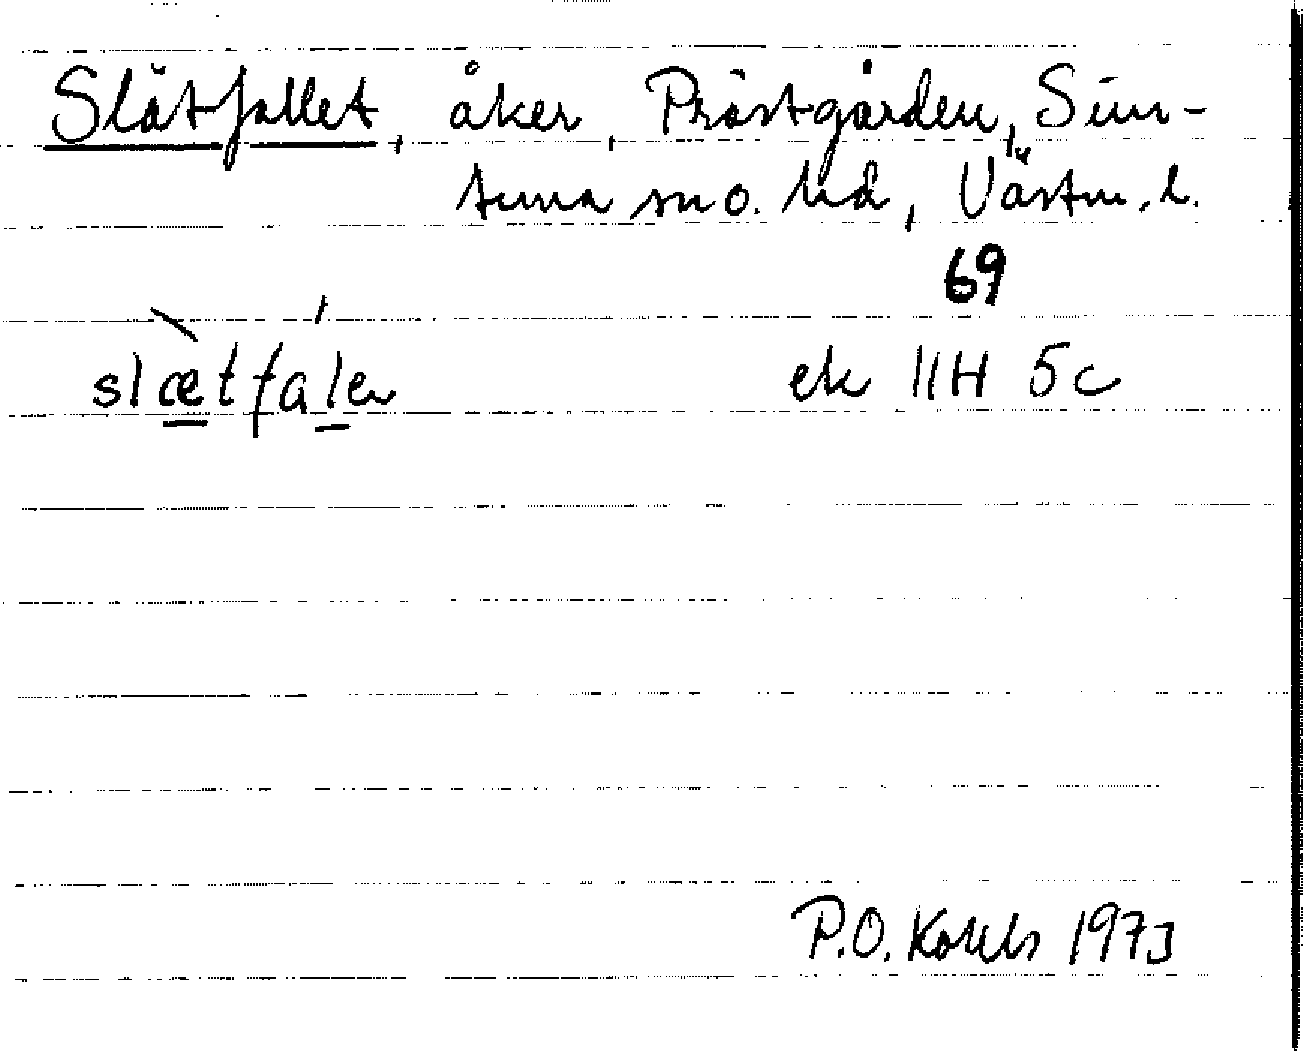 Slätfallet, åker, Prästgården, Sim-
tuna sn o. hd, Västm. l.
69
slætfalen ek 11H 5c
P.O. 1973